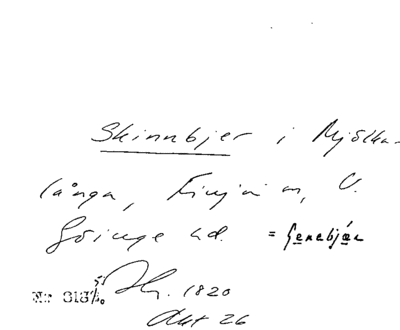 Skinnbjer i Mjölka-
långa, Finja sn, V.
Göinge hd. = Genebjär
1820
Akt 26